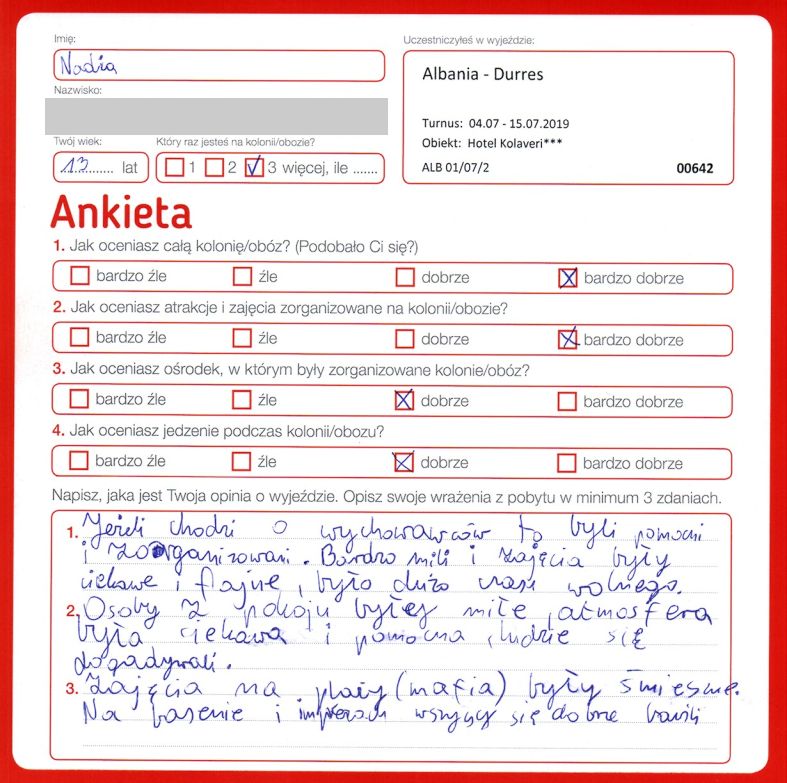 Imię:
Nadia
Nazwisko:
Twój wiek:
13 lat
Który raz jesteś na kolonii/obozie?
1 2 3 więcej, ile .......
Uczestniczyłeś w wyjeździe:
Albania - Durres
Turnus: 04.07 - 15.07.2019
Obiekt: Hotel Kolaveri***
ALB 01/07/2 00642
Ankieta
1. Jak oceniasz całą kolonię/obóz? (Podobało Ci się?)
bardzo źle źle dobrze bardzo dobrze
2. Jak oceniasz atrakcje i zajęcia zorganizowane na kolonii/obozie?
bardzo źle źle dobrze bardzo dobrze
3. Jak oceniasz ośrodek, w którym były zorganizowane kolonie/obóz?
bardzo źle źle dobrze bardzo dobrze
4. Jak oceniasz jedzenie podczas kolonii/obozu?
bardzo źle źle dobrze bardzo dobrze
Napisz, jaka jest Twoja opinia o wyjeździe. Opisz swoje wrażenia z pobytu w minimum 3 zdaniach.
1. Jeżeli chodzi o wychowawców to byli pomocni
i zorganizowani. Bardzo mili i zajęcia były
ciekawe i fajne, było dużo czasu wolnego.
2. Osoby z pokoju były miłe, atmosfera
była ciekawa i pomocna, ludzie się
dogadywali.
3. Zajęcia na plaży (mafia) były śmieszne.
Na basenie i imprezach wszyscy się dobrze bawili